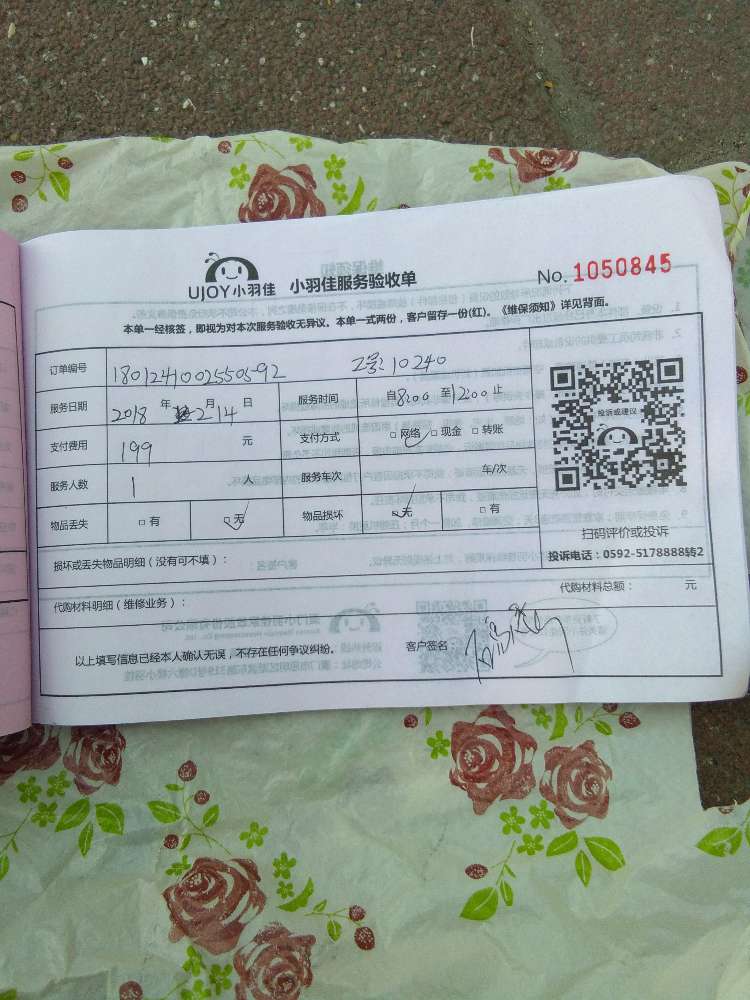 UJOY小羽佳 小羽佳服务验收单 No. 1050845
本单一经核签，即视为对本次服务验收无异议。本单一式两份，客户留存一份(红)。《维保须知》详见背面。
订单编号 18012410025505592 工号:10240
服务日期 2018 年 2 月 14 日 服务时间 自8:00 至12:00 止
投诉或建议
支付费用 199 元 支付方式 □网络 □现金 □转账
服务人数 1 人 服务车次 车/次
物品丢失 □有 □无 物品损坏 □无 □有
扫码评价或投诉
投诉电话：0592-5178888转2
损坏或丢失物品明细（没有可不填）：
代购材料明细（维修业务）： 代购材料总额： 元
以上填写信息已经本人确认无误，不存在任何争议纠纷。 客户签名